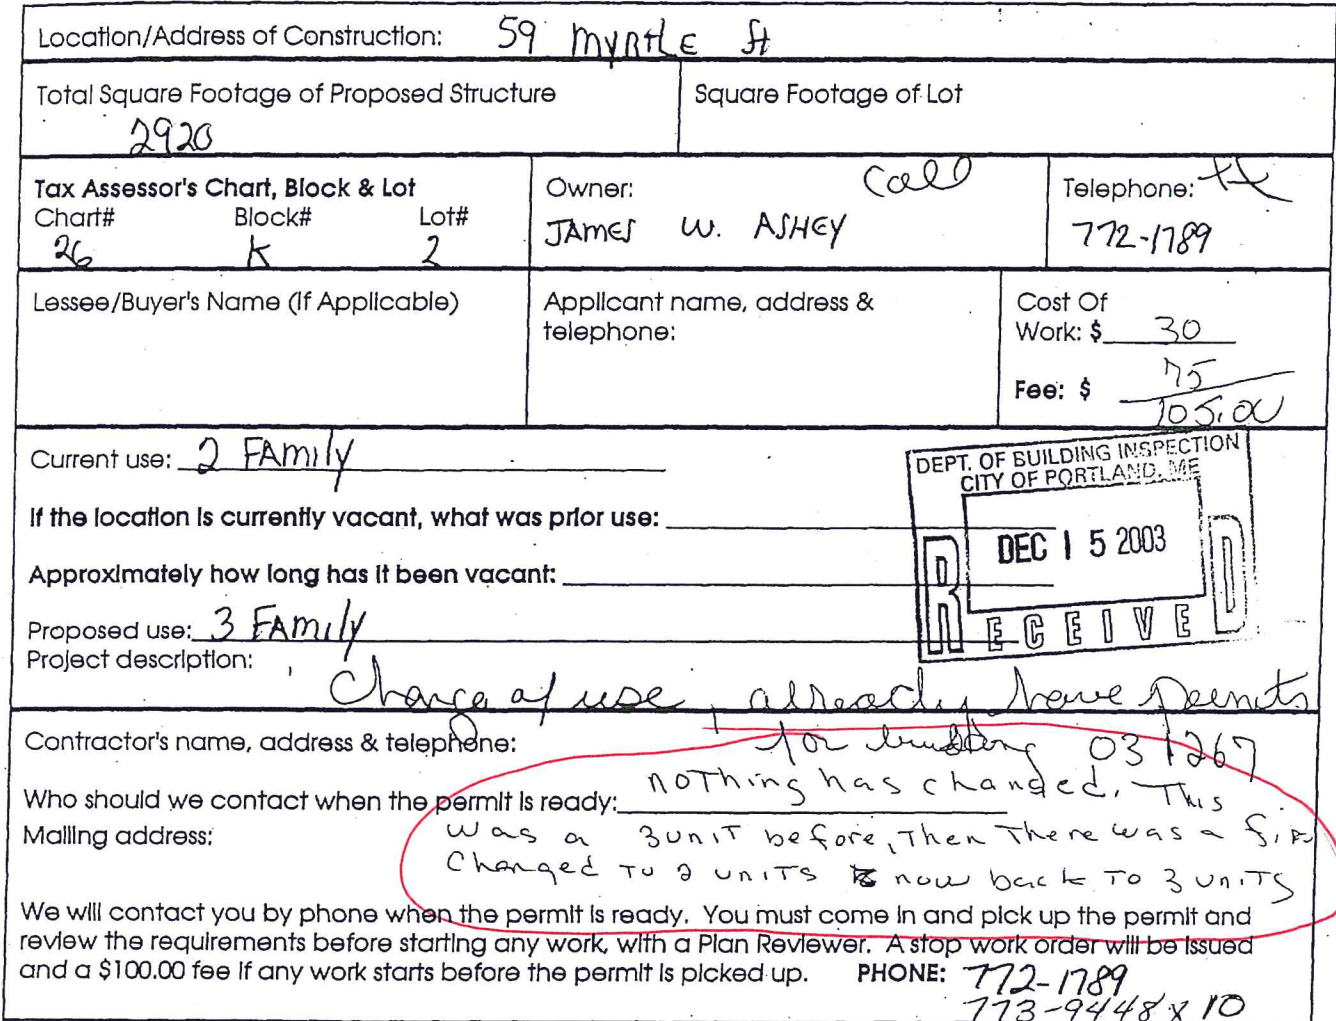 Location/Address of Construction: 59 Myrtle St
Total Square Footage of Proposed Structure
2920
Square Footage of Lot
Tax Assessor's Chart, Block & Lot
Chart# Block# Lot#
26 K 2
Owner: Call
JAMES W. ASHEY
Telephone:
772-1789
Lessee/Buyer's Name (If Applicable)
Applicant name, address &
telephone:
Cost Of
Work: $ 30
Fee: $ 75
105.00
Current use: 2 FAMIly
If the location is currently vacant, what was prior use:
Approximately how long has it been vacant:
Proposed use: 3 FAMIly
Project description:
Change of use, already have permits
for building 031267
DEPT. OF BUILDING INSPECTION
CITY OF PORTLAND, ME
DEC 15 2003
RECEIVED
Contractor's name, address & telephone:
Who should we contact when the permit is ready:
Mailing address:
nothing has changed, This
was a 3 unit before, Then There was a fire
Changed To 2 units now back To 3 units
We will contact you by phone when the permit is ready. You must come in and pick up the permit and
review the requirements before starting any work, with a Plan Reviewer. A stop work order will be issued
and a $100.00 fee if any work starts before the permit is picked up. PHONE: 772-1789
773-9448 x 10